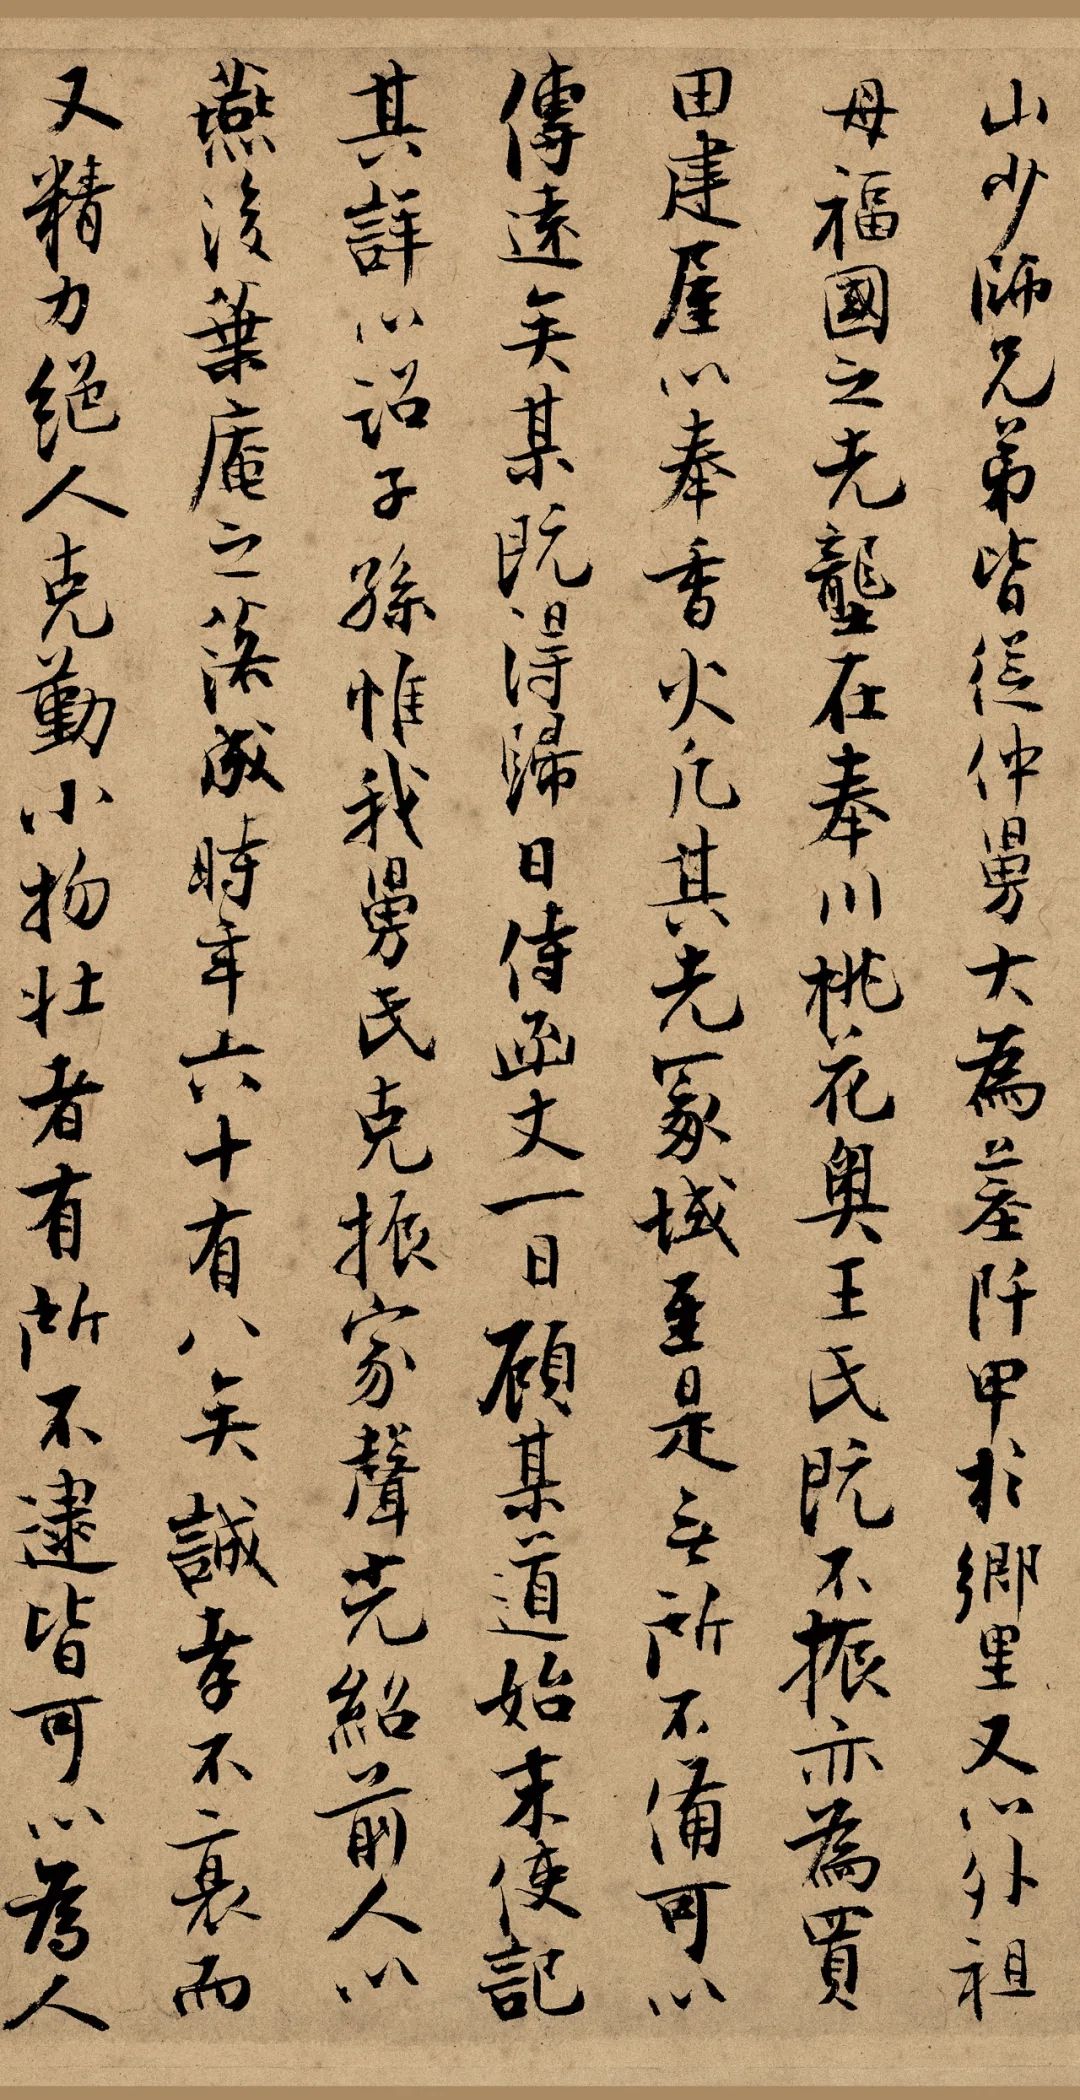 山少師兄弟皆從仲舅大為墓阡甲於鄉里又以外祖
母福國之先壟在奉川桃花奥王氏既不振亦為買
田建屋以奉香火凡其先冢域至是無所不備可以
傳遠矣某既得歸日侍函丈一日顧某道始末使記
其詳以詔子孫惟我舅氏克振家聲光紹前人以
燕後葉庵之落成時年六十有八矣誠孝不衰而
又精力絕人克勤小物壯者有所不逮皆可以為人